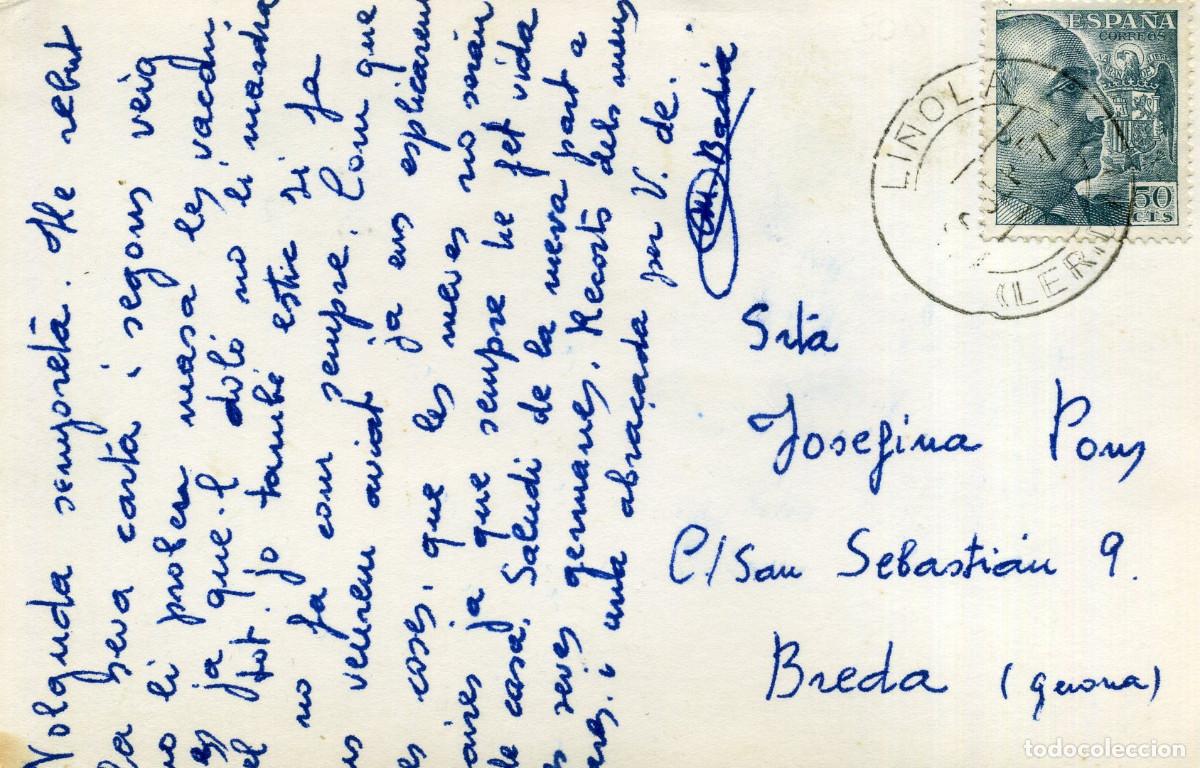 Volguda senyoreta. He rebut
la seva carta i segons veig
no li proben masa les vacan
es ja que·l doló no li masdra
el tot. jo també estic si fa
no fa com sempre. Com que
us veurem aviat ja ens esplicarem
es coses, que les meves no serán
aires ja que sempre he fet vida
de casa. Saludi de la meva part a
s seves germanes. Recorts dels meus
ares. i una abraçada per V. de.
M Badia
ESPAÑA
CORREOS
50
CTS
LIÑOLA
(LERIDA)
Srta
Josefina Pons
C/San Sebastián 9.
Breda (gerona)
todocoleccion